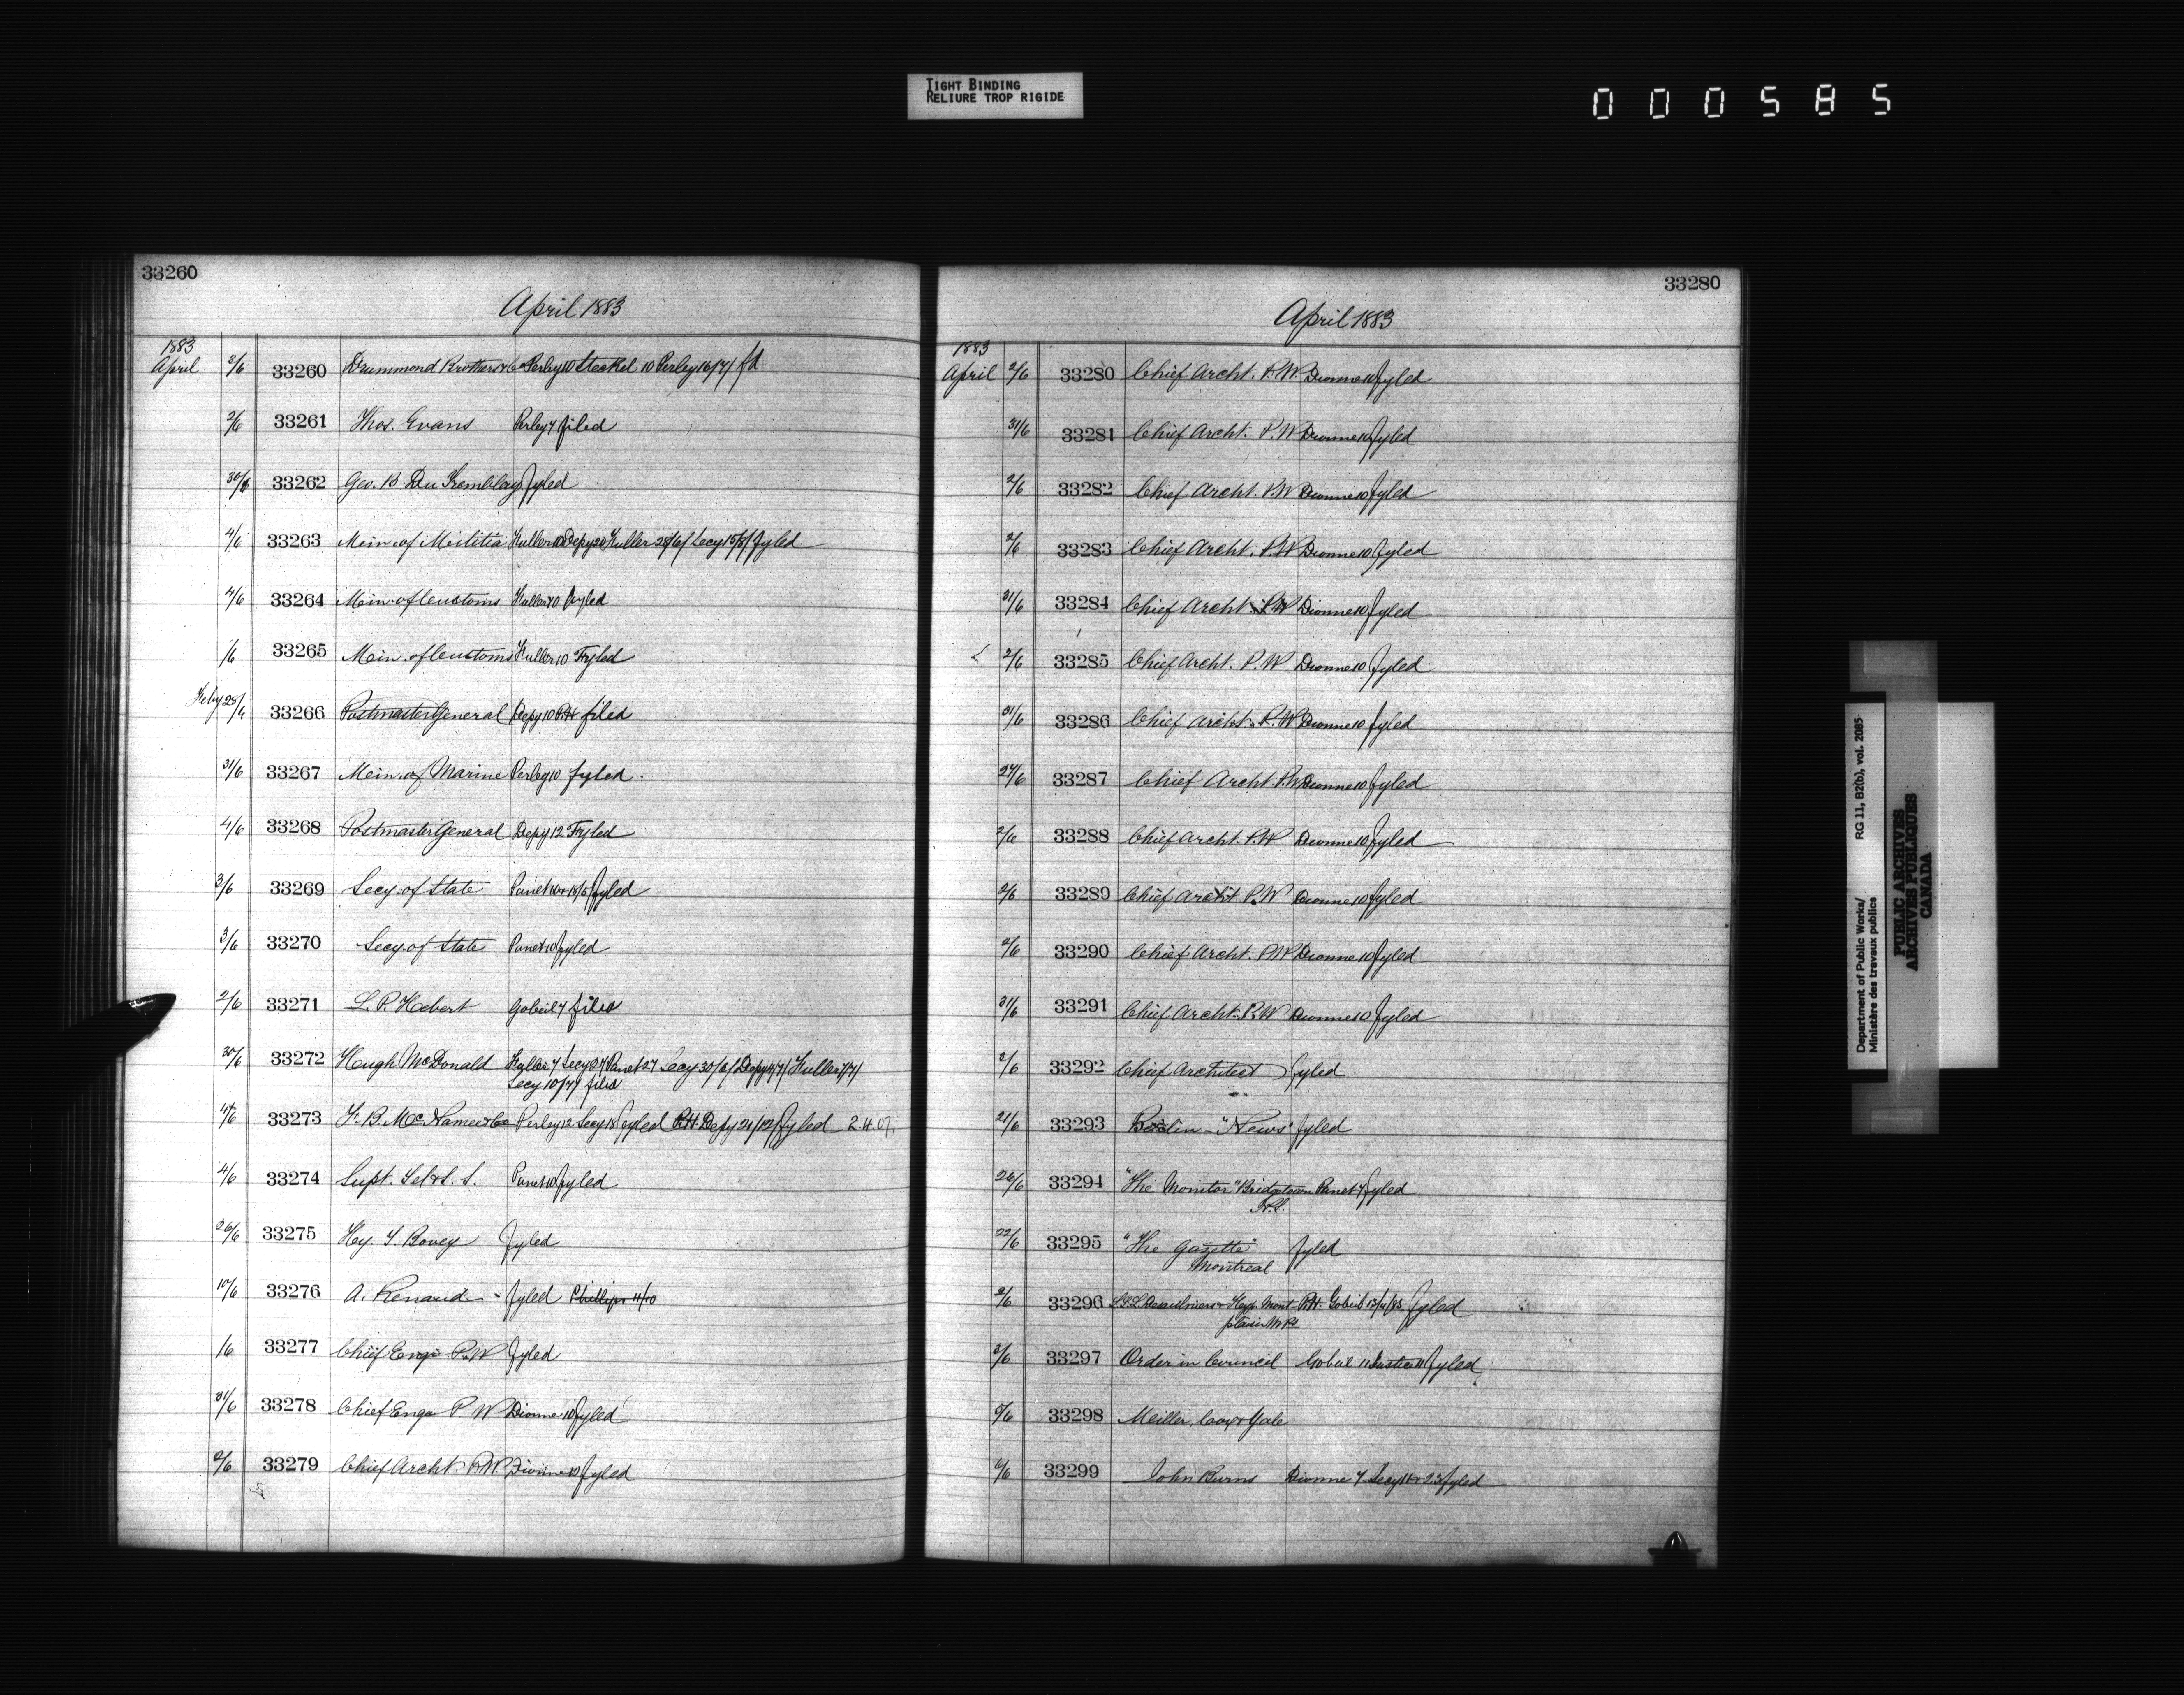 TIGHT BINDING
RELIURE TROP RIGIDE
000585
33260
April 1883
1883
April 3/6 33260 Drummond Brothers & Co Perley 10 Steckel 10 Perley 16/7/ fd
2/6 33261 Thos. Evans Perley 7 filed
30/ 33262 Geo. B. Du Tremblay fyled
4/6 33263 Min. of Militia Fuller 10 Depy 20 Fuller 28/6/ Secy 15/8/ fyled
4/6 33264 Min. of Customs Fuller 10 fyled
/6 33265 Min. of Customs Fuller 10 Fyled
Feby 28/ 33266 Postmaster General Depy 10 filed
31/6 33267 Min. of Marine Perley 10 fyled.
4/6 33268 Postmaster General Depy 12 Fyled
3/6 33269 Secy. of State Panet 10 & 18/5/ fyled
3/6 33270 Secy. of State Panet 10 fyled
2/6 33271 L. P. Hebert Gobeil 7 filed
30/6 33272 Hugh McDonald Fuller 7 Secy 27 Panet 27 Secy 30/6/ Depy 4/7/ Fuller 7/7/
Secy 10/7/ filed
4/6 33273 F. B. McNamee & Co Perley 12 Secy 18 fyled R.H. Depy 21/12/ fyled 2.H.07.
4/6 33274 Supt. Tel & S. S. Panet 10 fyled
26/6 33275 Hy. T. Bovey fyled
10/6 33276 A. Renaud - fyled Phillips 11/10
/6 33277 Chief Engr P.W fyled
31/6 33278 Chief Engr P W Dionne 10 fyled
2/6 33279 Chief Archt. P.W Dionne 10 fyled
33280
April 1883
1883
April 2/6 33280 Chief Archt. P.W. Dionne 10 fyled
31/6 33281 Chief Archt. P.W Dionne 10 fyled
2/6 33282 Chief Archt. P.W Dionne 10 fyled
2/6 33283 Chief Archt. P.W Dionne 10 fyled
31/6 33284 Chief Archt. P.W Dionne 10 fyled
2/6 33285 Chief Archt. P.W Dionne 10 fyled
31/6 33286 Chief Archt. P.W Dionne 10 fyled
27/6 33287 Chief Archt P.W Dionne 10 fyled
2/6 33288 Chief Archt. P.W. Dionne 10 fyled
2/6 33289 Chief Archt P.W Dionne 10 fyled
2/6 33290 Chief Archt. P.W Dionne 10 fyled
31/6 33291 Chief Archt. P.W Dionne 10 fyled
2/6 33292 Chief Architect fyled
21/6 33293 Berlin - "News" fyled
26/6 33294 "The Monitor" Bridgetown Panet 7 fyled
N.S.
22/6 33295 "The Gazette" fyled
Montreal
2/6 33296 Mont R.H. Gobeil fyled
plaisir M Pt
3/6 33297 Order in Council Gobeil 11 Justice 11 fyled
2/6 33298 Miller, Cox & Yale
6/6 33299 John Burns Dionne 7 Secy 11 & 23 fyled
Department of Public Works/ RG 11, B2(b), vol. 2085
Ministère des travaux publics
PUBLIC ARCHIVES
ARCHIVES PUBLIQUES
CANADA